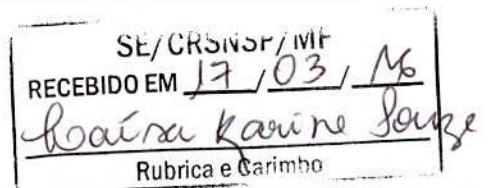 SE/CRSNSP/MF
RECEBIDO EM 17/03/16
Karine Souza
Rubrica e Carimbo